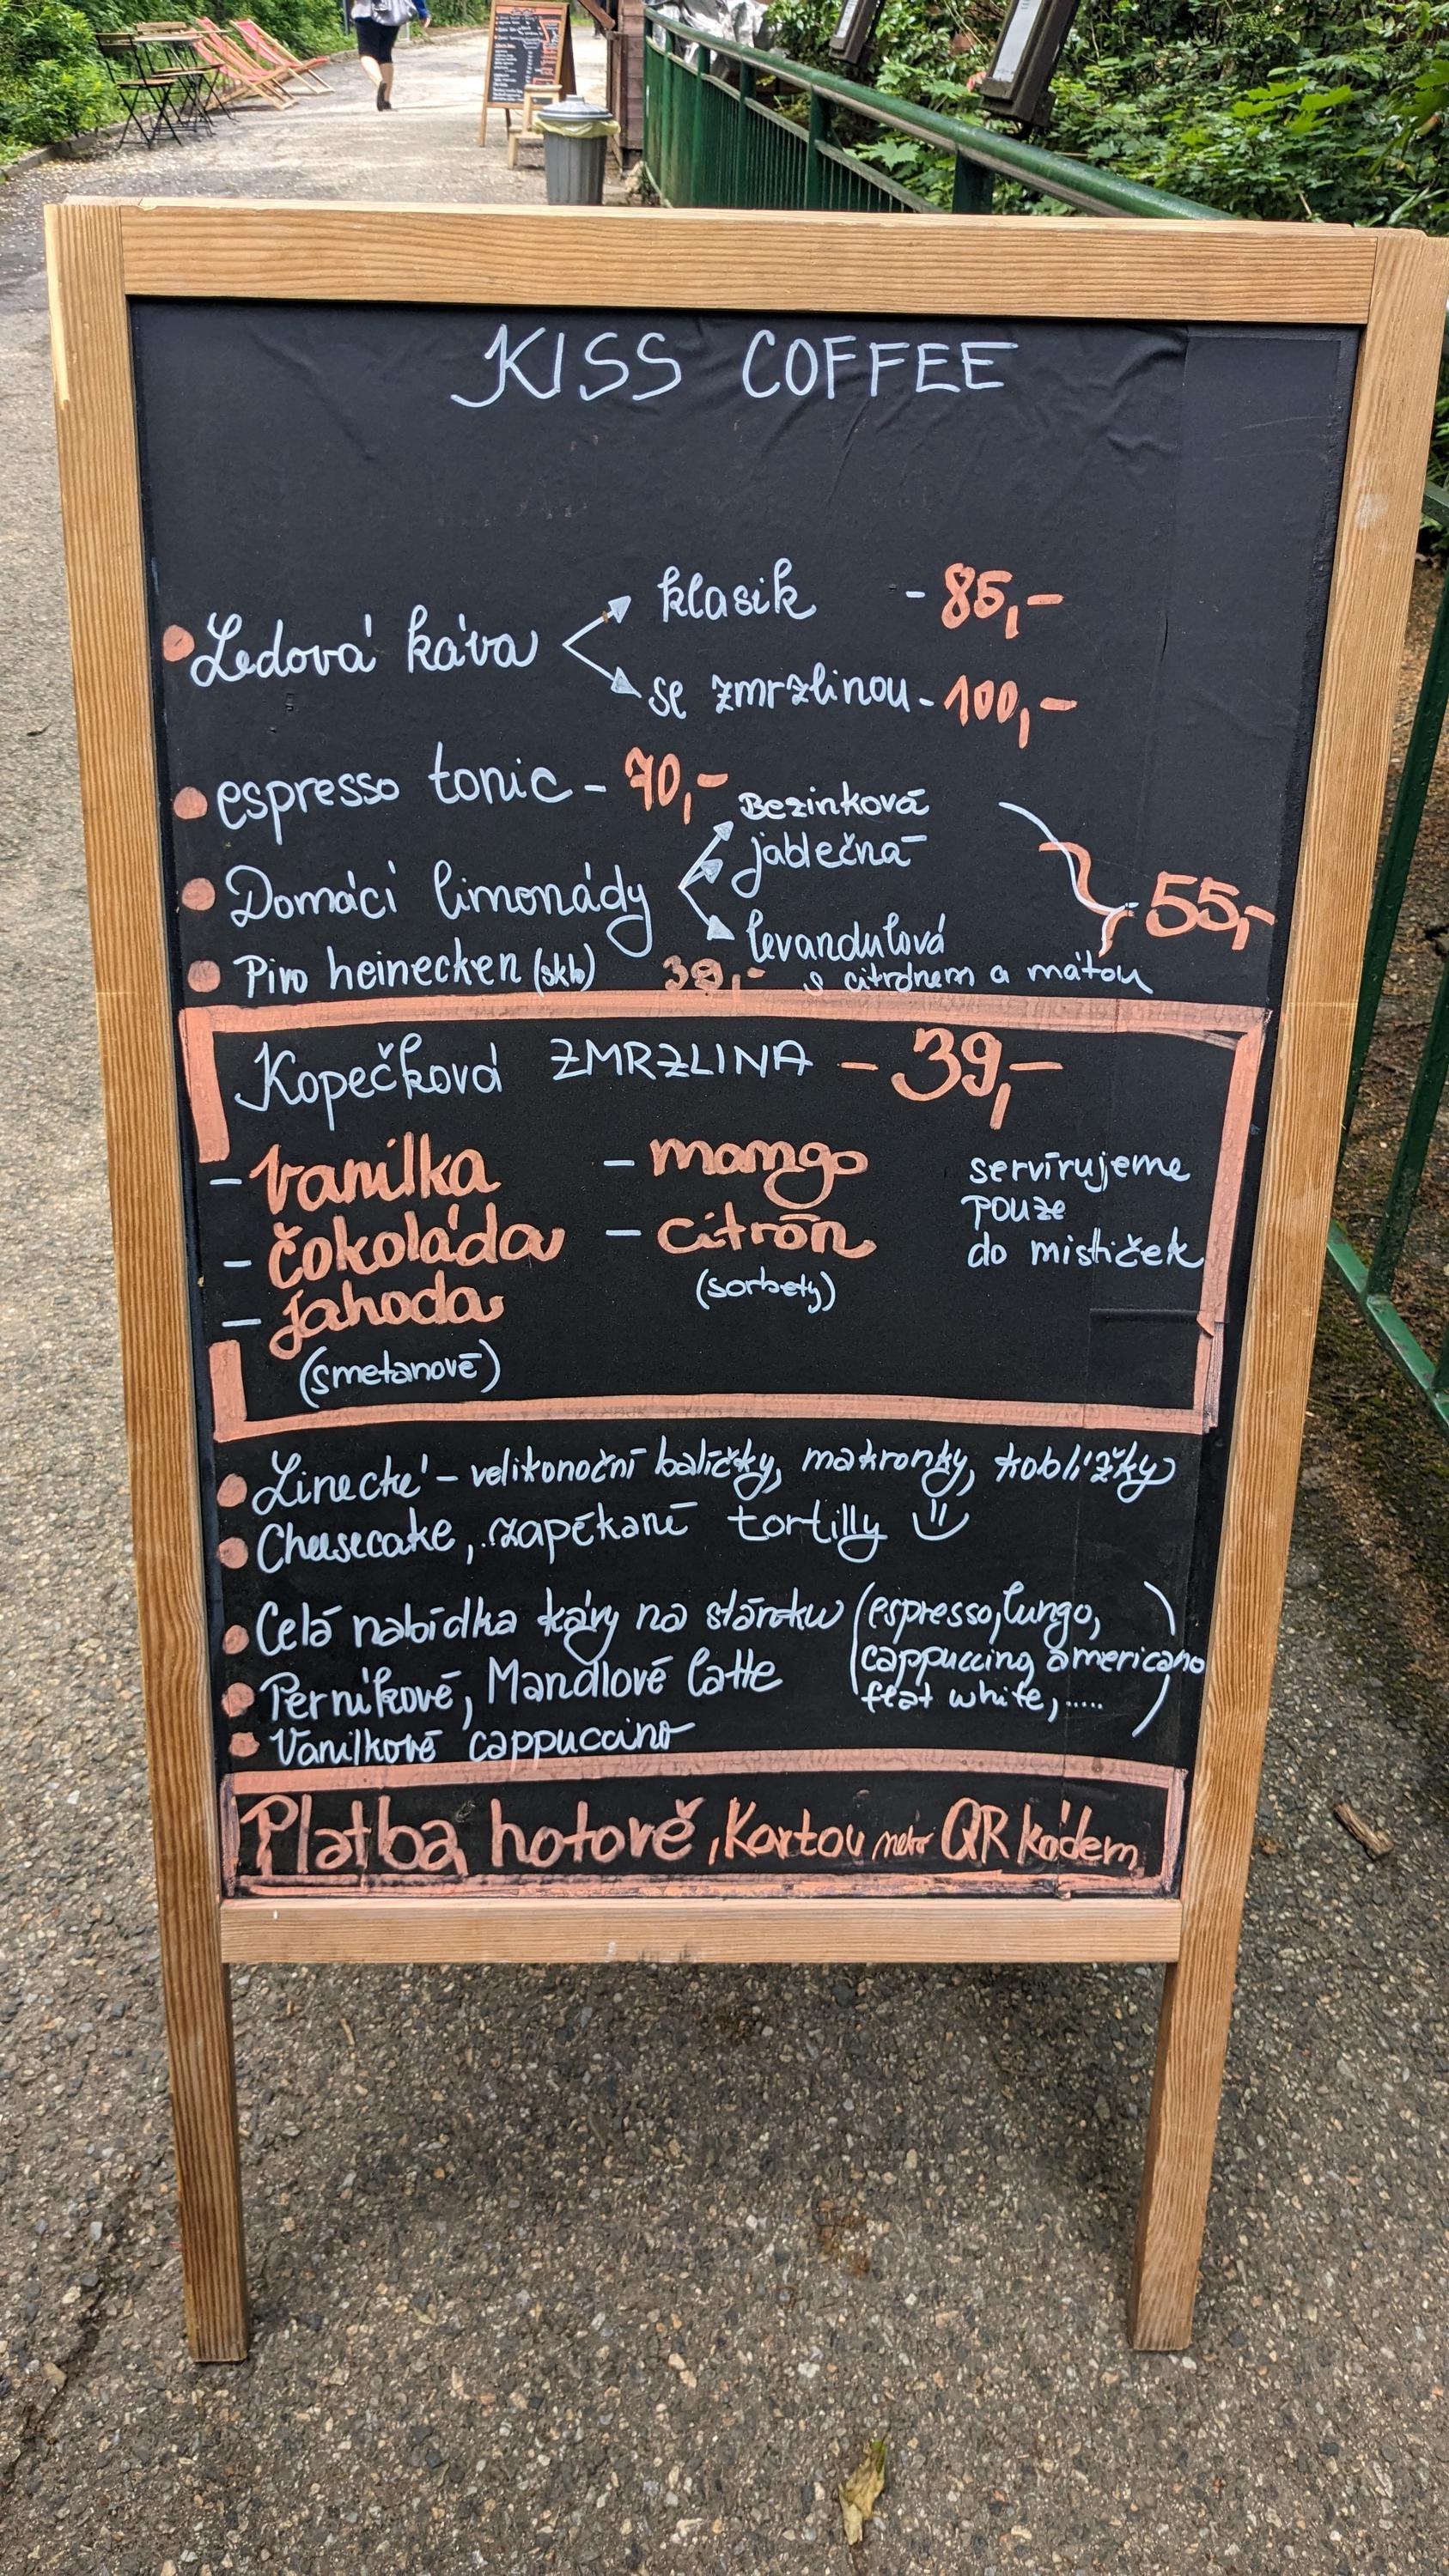 KISS COFFEE
Ledová káva klasik - 85,-
se zmrzlinou - 100,-
espresso tonic - 70,-
Domácí limonády Bezinková
jablečná
levandulová
s citrónem a mátou
55,-
Pivo heinecken (sklo) 39,-
Kopečková ZMRZLINA - 39,-
- Vanilka - mango
- čokoláda - citrón
- Jahoda (sorbety)
(smetanové)
servírujeme
pouze
do mističek
Linecké - velikonoční balíčky, makronky, koblížky
Cheesecake, zapékané tortilly
Celá nabídka kávy na stánku (espresso, lungo,
cappuccino, americano
flat white, .....)
Perníkové, Mandlové latte
Vanilkové cappuccino
Platba hotově, Kartou nebo QR kódem